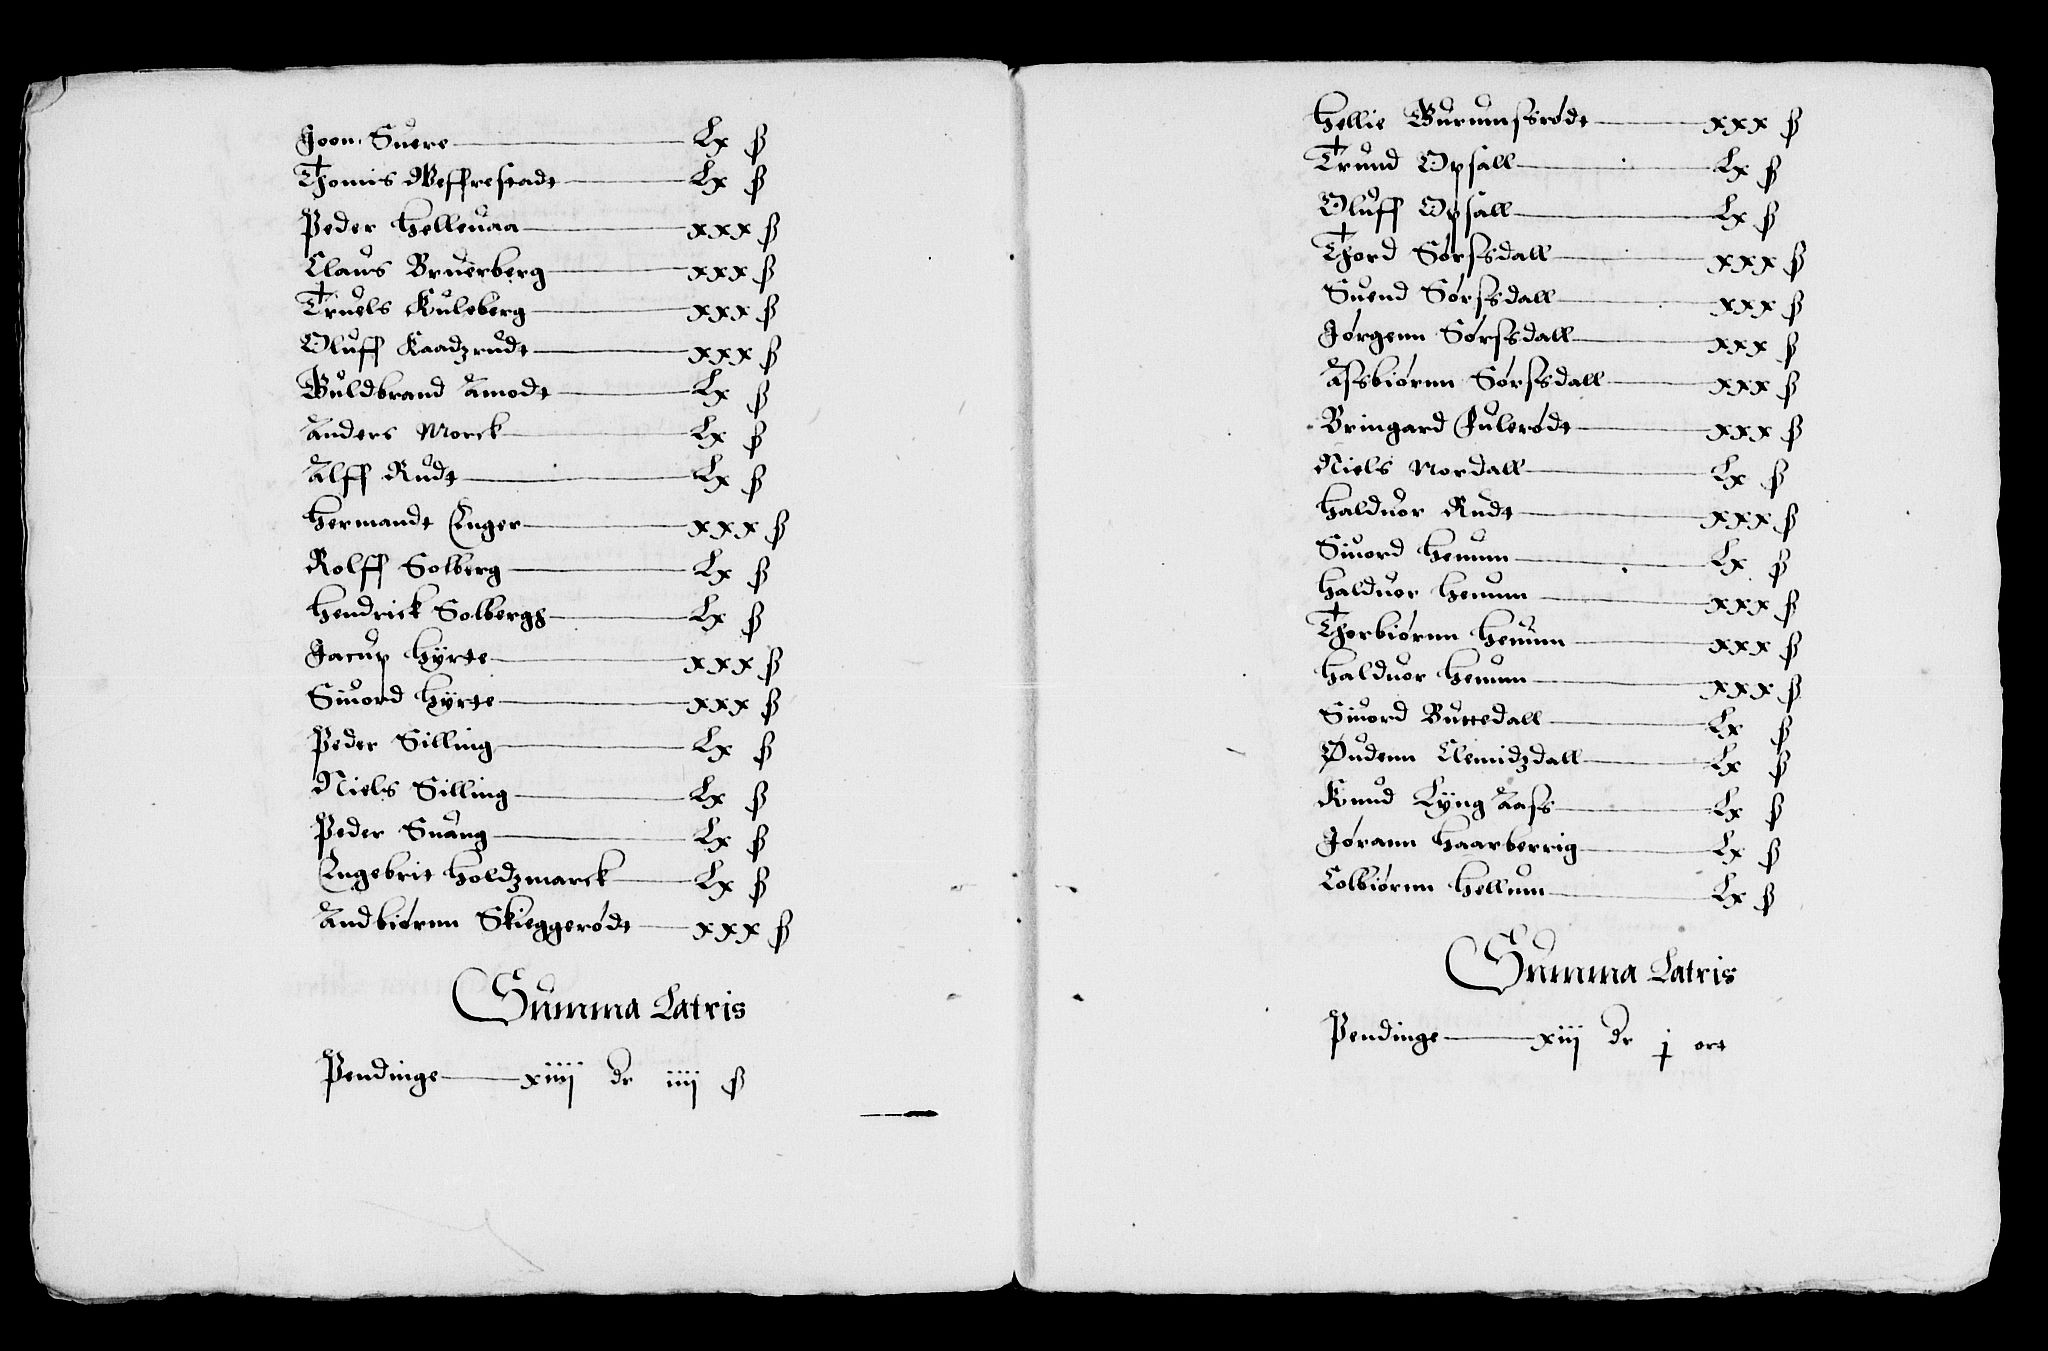 Joen Suere Lx ß
Thomis Weffrestadt Lx ß
Peder Helleuaa xxx ß
Claus Bruerberg xxx ß
Truels Kuleberg xxx ß
Oluff Kaadzrudt xxx ß
Guldbrand Amodt Lx ß
Anders Morck Lx ß
Alff Rudt Lx ß
Hermandt Enger xxx ß
Rolff Solberg Lx ß
Hendrick Solbergh Lx ß
Jacup Hÿrte xxx ß
Siuord Hÿrte xxx ß
Peder Silling Lx ß
Niels Silling Lx ß
Peder Suang Lx ß
Engebrit Holdzmarck Lx ß
Andbiørnn Skieggerødt xxx ß
Summa Latris
Pendinge xiiij dr iiij ß
Hellie Gurumsrødt xxx ß
Trund Opsall Lx ß
Oluff Opsall Lx ß
Thord Sørssdall xxx ß
Suend Sørssdall xxx ß
Jørgenn Sørssdall xxx ß
Assbiørnn Sørssdall xxx ß
Bringard Julerødt xxx ß
Niels Nordall Lx ß
Halduor Rudt xxx ß
Siuord Henum Lx ß
Halduor Henum xxx ß
Thorbiørnn Henum xxx ß
Halduor Henum xxx ß
Siuord Buttedall Lx ß
Øudenn Clemidzdall Lx ß
Knud Lÿng Aass Lx ß
Jørann Haarberrig Lx ß
Colbiørnn Hellum Lx ß
Summa Latris
Pendinge xiij dr j ort